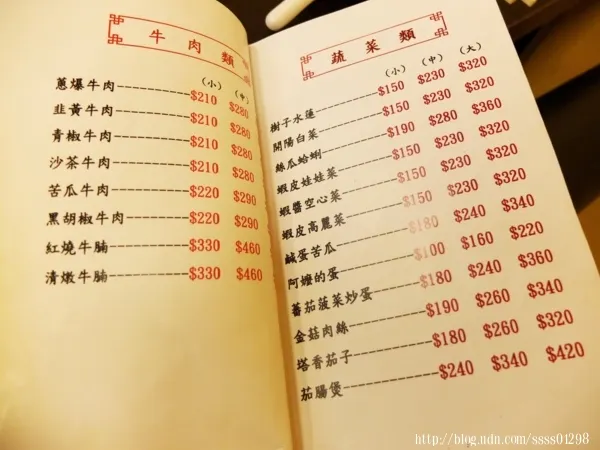 牛肉類
(小) (中)
蔥爆牛肉-----------$210 $280
韭黃牛肉-----------$210 $280
青椒牛肉-----------$210 $280
沙茶牛肉-----------$210 $280
苦瓜牛肉-----------$220 $290
黑胡椒牛肉---------$220 $290
紅燒牛腩-----------$330 $460
清燉牛腩-----------$330 $460
蔬菜類
(小) (中) (大)
樹子水蓮-----------$150 $230 $320
開陽白菜-----------$150 $230 $320
絲瓜蛤蜊-----------$190 $280 $360
蝦皮娃娃菜---------$150 $230 $320
蝦醬空心菜---------$150 $230 $320
蝦皮高麗菜---------$150 $230 $320
鹹蛋苦瓜-----------$180 $240 $340
阿嬤的蛋-----------$100 $160 $220
蕃茄菠菜炒蛋-------$180 $240 $360
金菇肉絲-----------$190 $260 $340
塔香茄子-----------$180 $260 $320
茄腸煲-------------$240 $340 $420
http://blog.udn.com/ssss01298